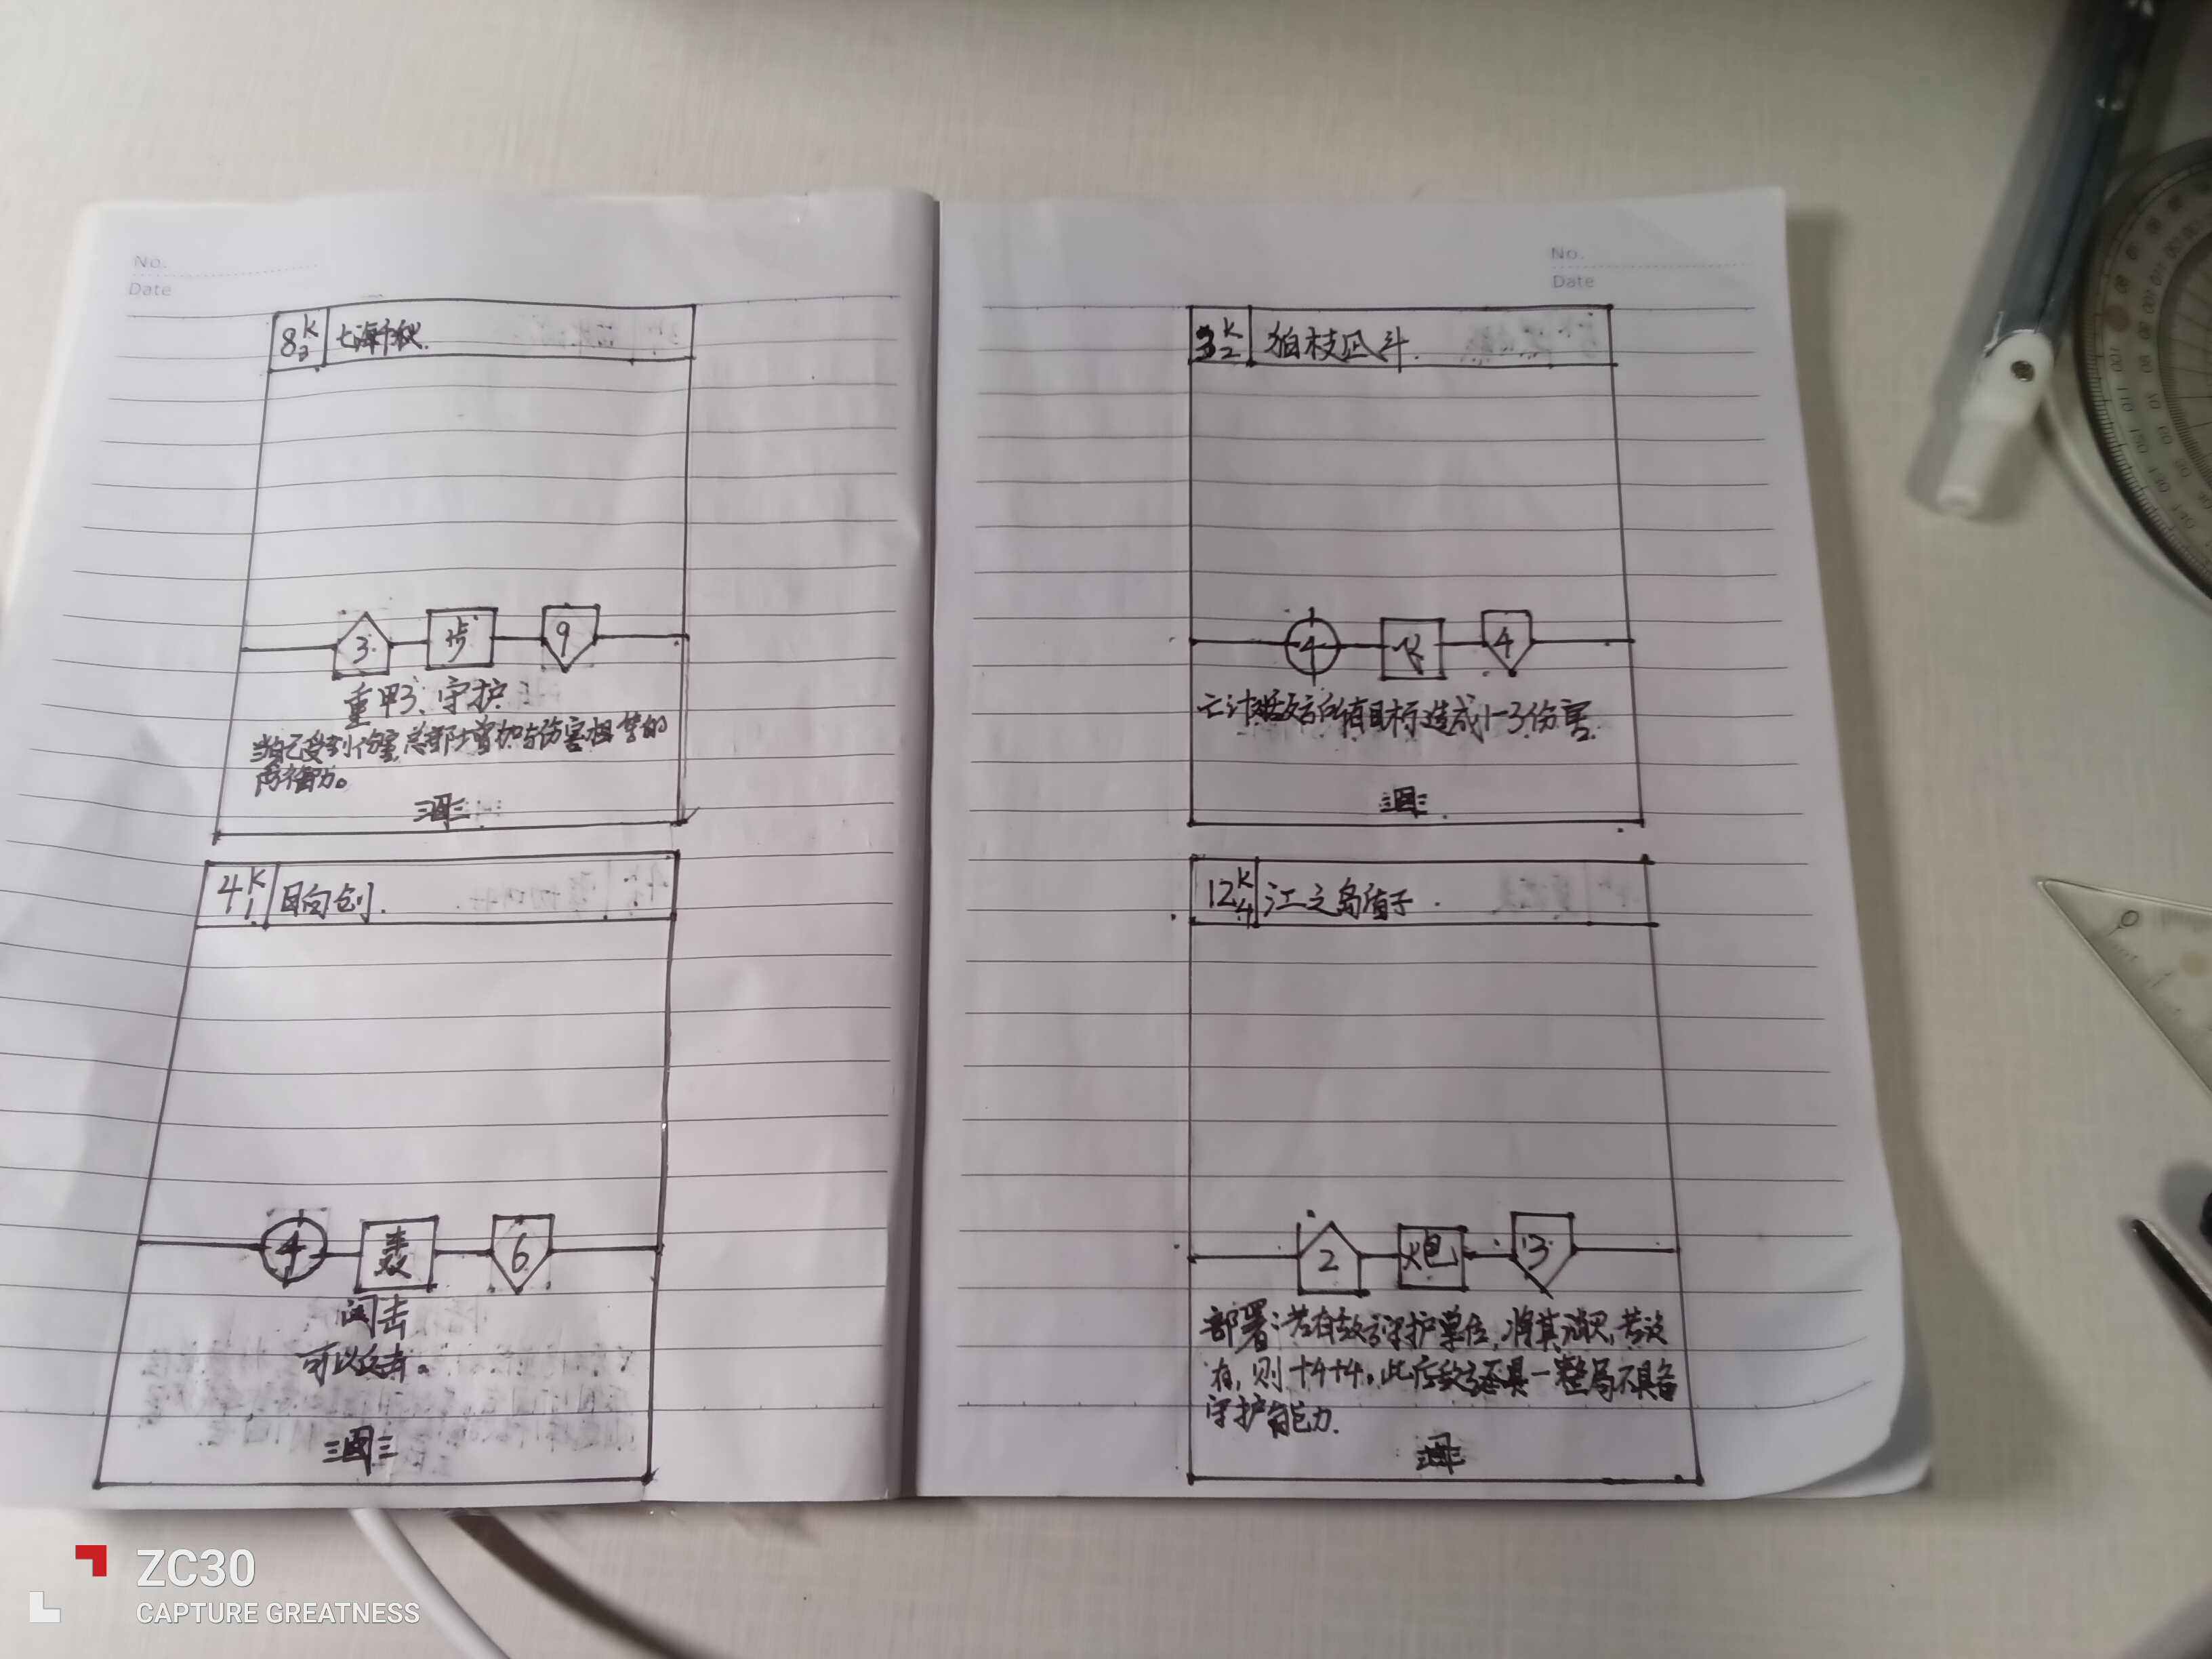 No.
Date
8 K 2
七海千秋.
3 步 9
重甲3、守护
当自己受到伤害,总部增加与伤害相等的
防御力。
4 K 1
日向创.
4 轰 6
闪击
可以反击。
No.
Date
3 K 2
狛枝凪斗.
4 飞 4
亡计:对敌方所有目标造成1-3伤害.
12 K 4
江之岛盾子.
2 炮 13
部署:若有敌方守护单位,将其消灭,若没
有,则+4+4。此后敌方一整局不具备
守护能力.
ZC30
CAPTURE GREATNESS